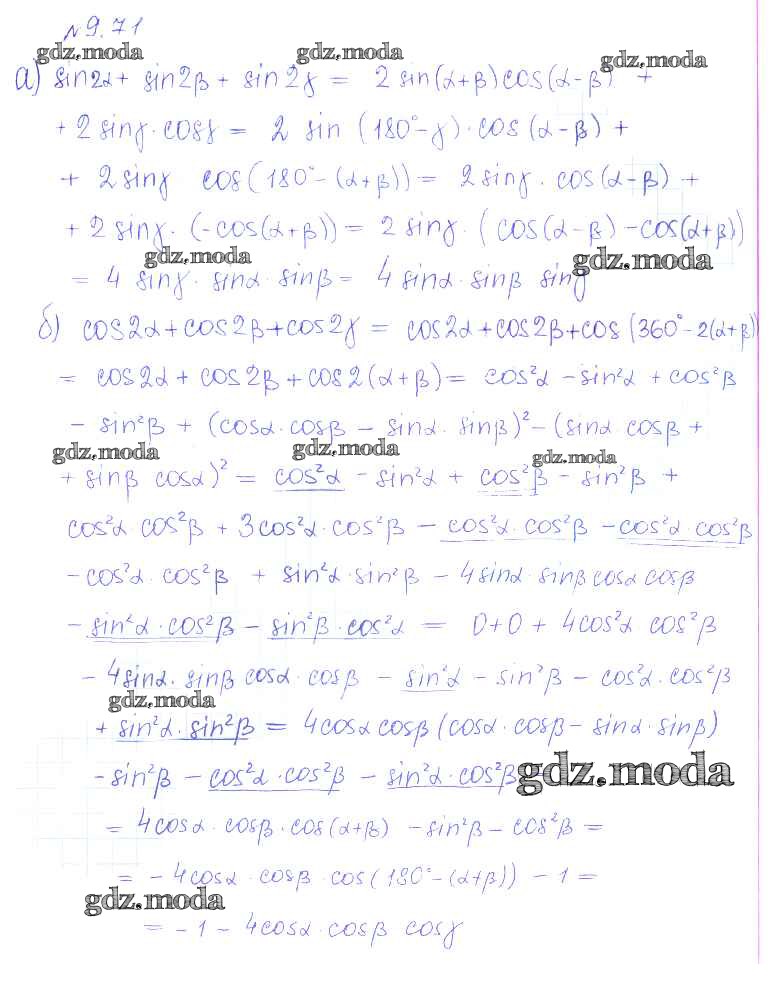 № 9.71
gdz.moda gdz.moda gdz.moda
а) sin2α + sin2β + sin2γ = 2 sin(α+β)cos(α-β) +
+ 2 sinγ · cosγ = 2 sin (180°-γ) · cos (α-β) +
+ 2 sinγ cos(180°-(α+β)) = 2 sinγ · cos(α-β) +
+ 2 sinγ · (-cos(α+β)) = 2 sinγ · (cos(α-β) -cos(α+β))
gdz.moda gdz.moda
= 4 sinγ · sinα · sinβ = 4 sinα · sinβ sinγ
б) cos2α + cos2β + cos2γ = cos2α + cos2β + cos (360°-2(α+β))
= cos2α + cos2β + cos2(α+β) = cos²α - sin²α + cos²β
- sin²β + (cosα · cosβ - sinα · sinβ)² - (sinα cosβ +
gdz.moda gdz.moda gdz.moda
+ sinβ cosα)² = cos²α - sin²α + cos²β - sin²β +
cos²α cos²β + 3cos²α · cos²β - cos²α · cos²β - cos²α cos²β
- cos²α · cos²β + sin²α · sin²β - 4sinα · sinβ cosα cosβ
- sin²α · cos²β - sin²β · cos²α = 0+0 + 4cos²α cos²β
- 4sinα · sinβ cosα · cosβ - sin²α - sin²β - cos²α · cos²β
gdz.moda
+ sin²α · sin²β = 4cosα cosβ (cosα · cosβ - sinα · sinβ)
- sin²β - cos²α · cos²β - sin²α · cos²β
gdz.moda
= 4cosα · cosβ · cos(α+β) - sin²β - cos²β =
= - 4cosα · cosβ · cos(180°-(α+β)) - 1 =
gdz.moda
= - 1 - 4cosα · cosβ cosγ